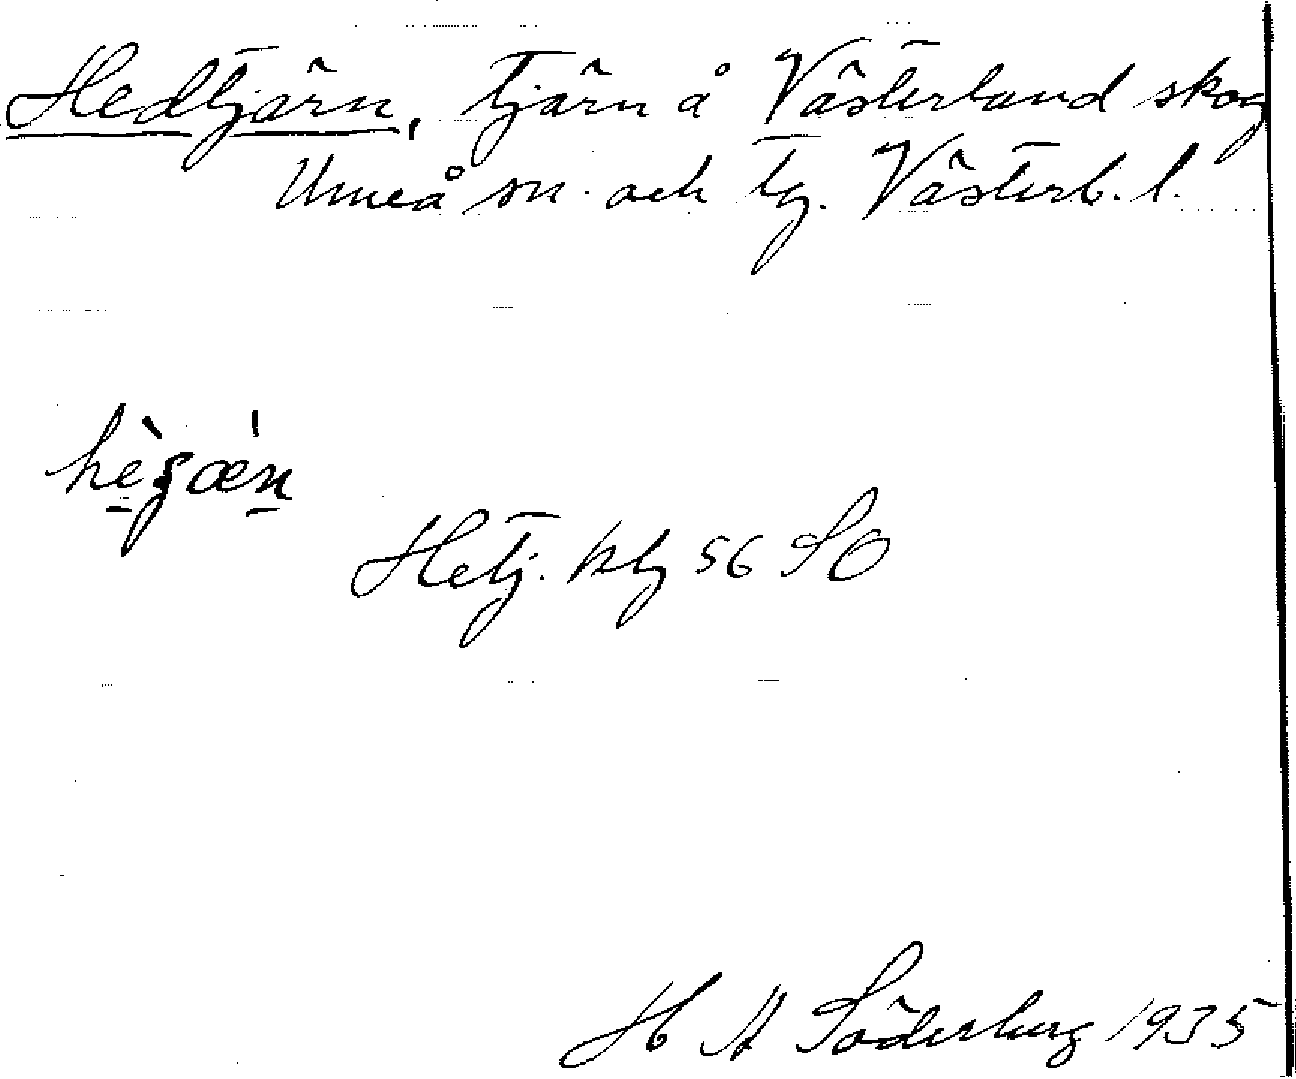 Hedtjärn, tjärn å Västerland skog
Umeå sn. och tg. Västerb. l.
Hetj. kbg 56 SO
H A Söderberg 1935